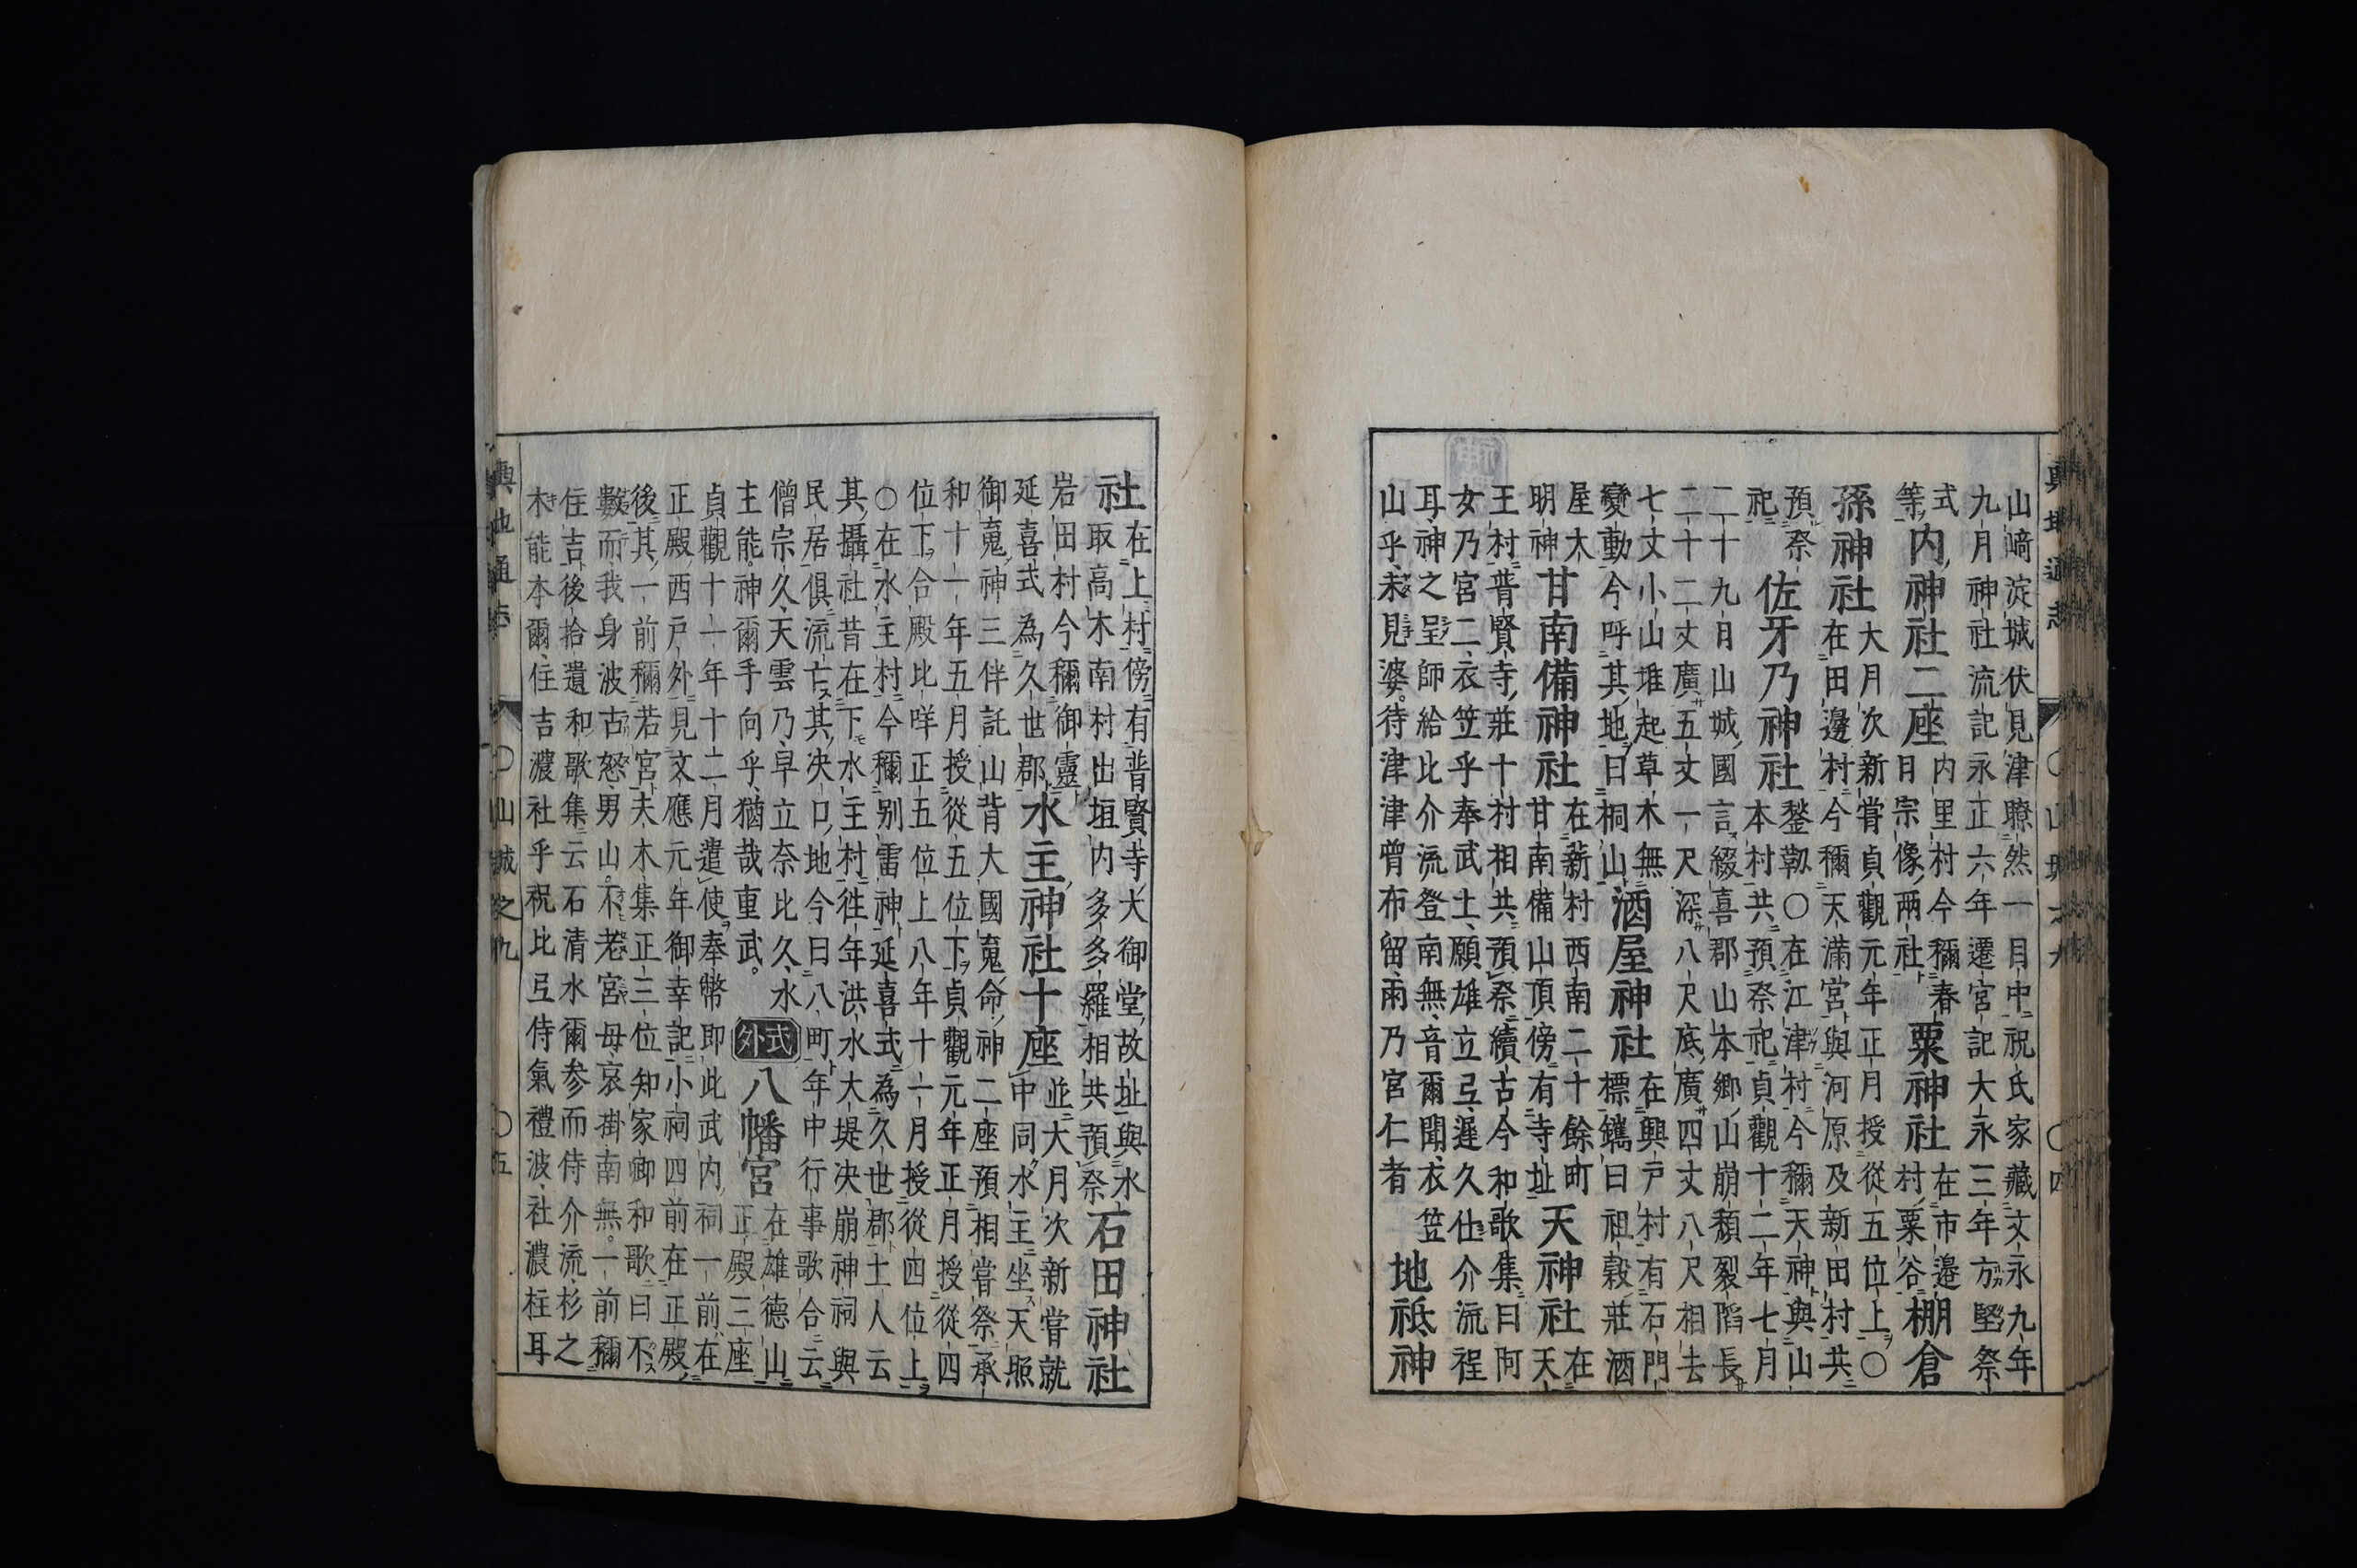 輿地通志 ○山城之九 ○四
山﨑淀城伏見津瞭然一目中祝氏家藏文永九年
九月神社流記永正六年遷宮記大永三年方堅祭
式
等
內神社二座
內里村今稱春
日宗像兩社
粟神社
在市邊
村粟谷
棚倉
孫神社
大月次新嘗貞觀元年正月授從五位上○
在田邊村今稱天滿宮與河原及新田村共
預祭
祀
佐牙乃神社
鍫靱○在江津村今稱天神與山
本村共預祭祀貞觀十二年七月
二十九日山城國言綴喜郡山本鄉山崩頽裂陷長
二十二丈廣五丈一尺深八尺底廣四丈八尺相去
七丈小山堆起草木無
變動今呼其地曰桐山
酒屋神社
在興戸村有石門
標鐫曰祖穀莊酒
屋大
明神
甘南備神社
在薪村西南二十餘町
甘南備山頂傍有寺址
天神社
在
天
王村普賢寺莊十村相共預祭續古今和歌集曰阿
女乃宮二衣笠乎奉武士願雄立弖遲久仕介流裎
耳神之呈師給比介流登南無音爾聞衣笠
山乎未見婆待津津曾布留雨乃宮仁者
地祗神
社
在上村傍有普賢寺大御堂故址與水
取高木南村出垣內多多羅相共預祭
石田神社
岩田村今稱御靈
延喜式為久世郡
水主神社十座
並大月次新嘗就
中同水主坐天照
御䰟神三伴託山背大國䰟命神二座預相嘗祭承
和十一年五月授從五位下貞觀元年正月授從四
位下合殿比咩正五位上八年十一月授從四位上
○在水主村今稱別雷神延喜式為久世郡土人云
其攝社昔在下水主村徃年洪水大堤決崩神祠與
民居俱流亡其決口地今曰八町年中行事歌合云
僧宗久天雲乃早立奈比久水
主能神爾手向乎猶哉重武。
式外
八幡宮
在雄德山
正殿三座
貞觀十一年十二月遣使奉幣即此武內祠一前在
正殿西戸外見文應元年御幸記小祠四前在正殿
後其一前稱若宮夫木集正三位知家卿和歌曰不
數而我身波古怒男山。不老宮毋哀掛南無。一前稱
住吉後拾遺和歌集云石清水爾參而侍介流杉之
木能本爾住吉濃社乎祝比弖侍氣禮波社濃柱耳
輿地通志 ○山城之九 ○五